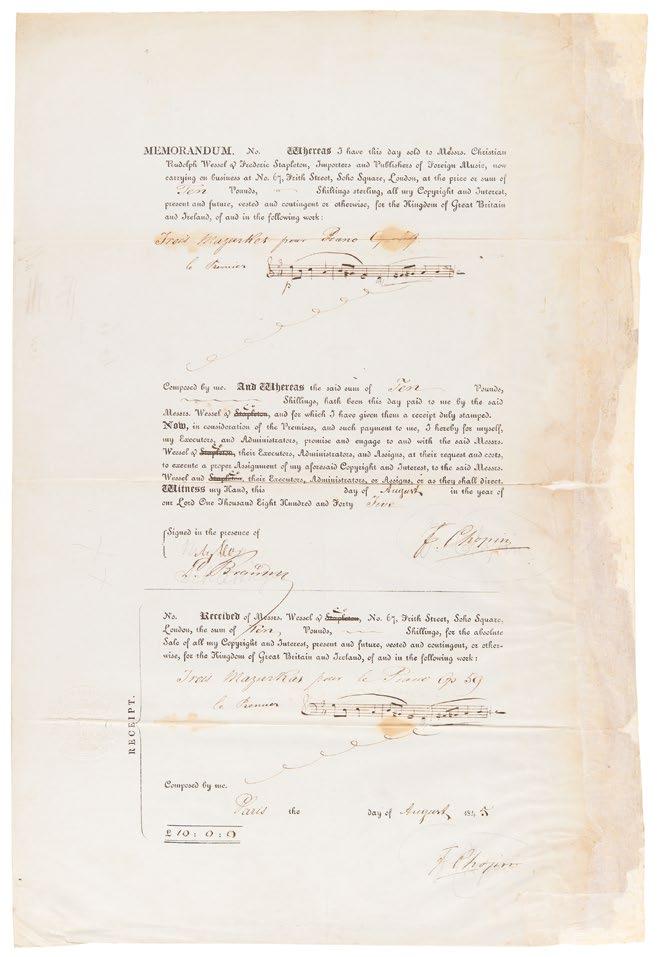 MEMORANDUM. No. Whereas I have this day sold to Messrs. Christian
Rudolph Wessel & Frederic Stapleton, Importers and Publishers of Foreign Music, now
carrying on business at No. 67, Frith Street, Soho Square, London, at the price or sum of
Ten Pounds, Shillings sterling, all my Copyright and Interest,
present and future, vested and contingent or otherwise, for the Kingdom of Great Britain
and Ireland, of and in the following work:
Trois Mazurkas pour Piano
le Premier
p
Composed by me. And Whereas the said sum of Ten Pounds,
Shillings, hath been this day paid to me by the said
Messrs. Wessel & Stapleton, and for which I have given them a receipt duly stamped.
Now, in consideration of the Premises, and such payment to me, I hereby for myself,
my Executors, and Administrators, promise and engage to and with the said Messrs.
Wessel & Stapleton, their Executors, Administrators, and Assigns, at their request and costs,
to execute a proper Assignment of my aforesaid Copyright and Interest, to the said Messrs.
Wessel and Stapleton, their Executors, Administrators, or Assigns, or as they shall direct.
Witness my Hand, this day of August in the year of
our Lord One Thousand Eight Hundred and Forty Five
Signed in the presence of
F. Chopin
No. Received of Messrs. Wessel & Stapleton, No. 67, Frith Street, Soho Square,
London, the sum of ten, Pounds, Shillings, for the absolute
Sale of all my Copyright and Interest, present and future, vested and contingent, or other-
wise, for the Kingdom of Great Britain and Ireland, of and in the following work:
Trois Mazurkas pour le Piano Op 59
le Premier
RECEIPT.
Composed by me.
Paris the day of August 1845
£ 10 : 0 : 0
F. Chopin